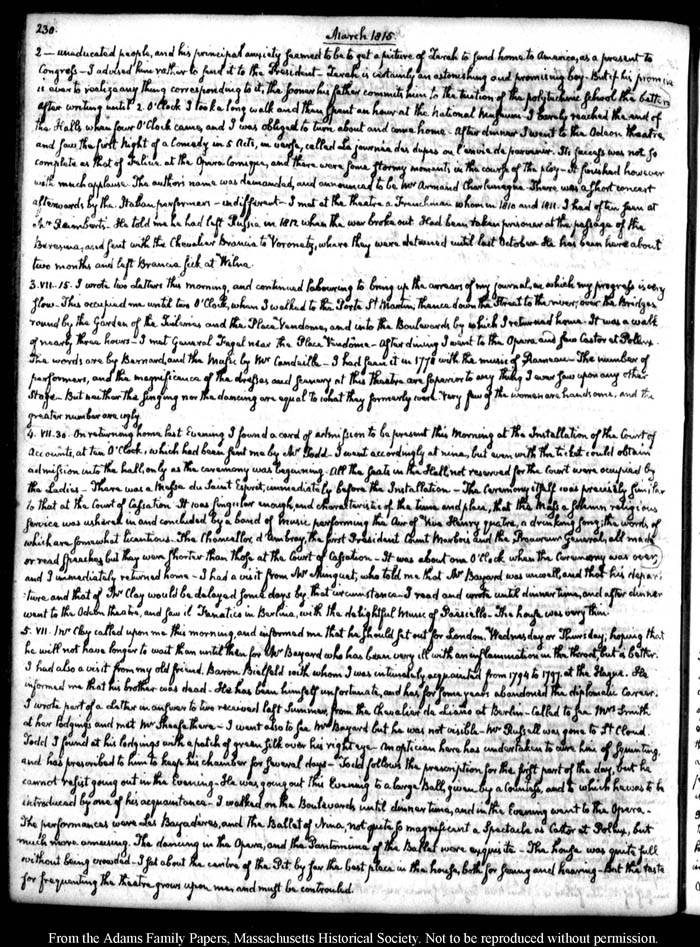 230.
March 1815.
2 — uneducated people, and his principal anxiety seemed to be to get a picture of Zerah to send home to America, as a present to
Congress — I advised him rather to send it to the President — Zerah is certainly an astonishing and promising boy — But if his promise
is ever to realize any thing corresponding to it, the sooner his father commits him to the tuition of the polytechnic School the better
after writing until 2. O'Clock I took a long walk and then spent an hour at the National Museum — I barely reached the end of
the Halls when four O'Clock came, and I was obliged to turn about and come home. After dinner I went to the Odeon theatre,
and saw the first Night of a Comedy in 5 Acts, in verse, called La journée des dupes ou l'envie de parvenir. Its success was not so
complete as that of Felice, at the Opera Comique, and there were some stormy moments in the course of the play — It finished however
with much applause. The authors name was demanded, and announced to be Mr Armand Charlemagne. There was a short concert
afterwards by the Italian performers — indifferent — I met at the theatre a Frenchman whom in 1810 and 1811. I had often seen at
Mr Raimbert's. He told me he had left Russia in 1812 when the war broke out. Had been taken prisoner at the passage of the
Beresina, and sent with the Chevalier Brancia to Voronetz, where they were detained until last October. He has been here about
two months and left Brancia sick at Wilna.
3. VII. 15. I wrote two letters this morning, and continued labouring to bring up the arrears of my journal, in which my progress is very
slow. This occupied me until two O'Clock, when I walked to the Porte St. Martin, thence down the Street to the river, over the Bridges
round by the Garden of the Tuileries and the Place Vendome, and into the Boulevards by which I returned home. It was a walk
of nearly three hours — I met General Fagel near the Place Vendome — After dining I went to the Opera and saw Castor et Pollux.
The words are by Bernard, and the Music by Mr Candeille — I had seen it in 1778 with the music of Rameau — The number of
performers, and the magnificence of the dresses and scenery at this theatre are superior to any thing I ever saw upon any other
Stage — But neither the singing nor the dancing are equal to what they formerly were. Very few of the women are handsome, and the
greater number are ugly.
4. VII. 30. On returning home last Evening I found a card of admission to be present this Morning at the Installation of the Court of
Accounts, at ten O'Clock, which had been sent me by Mr Todd. I went accordingly at nine, but even with the ticket could obtain
admission into the hall, only as the ceremony was beginning — All the seats in the Hall not reserved for the Court were occupied by
the Ladies — There was a Messe du Saint Esprit, immediately before the Installation — The Ceremony itself was precisely similar
to that at the Court of Cassation. It was singular enough, and characteristic of the time and place, that the Mass a solemn religious
service was ushered in and concluded by a band of music performing the Air of "Vive Henry quatre, a drinking song; the words of
which are somewhat licentious. The Chancellor, d'Ambray, the first President Count Marbois and the Procureur General, all made
or read speeches but they were shorter than those at the Court of Cassation — It was about one O'Clock when the Ceremony was over,
and I immediately returned home — I had a visit from who told me that Mr Bayard was unwell, and that his depar-
ture and that of Mr Clay would be delayed some days by that circumstance — I read and wrote until dinner time, and after dinner
went to the Odeon theatre, and saw il Fanatico in Berlina, with the delightful Music of Paisiello. The house was very thin.
5. VII. Mr Clay called upon me this morning, and informed me that he should set out for London Wednesday or Thursday; hoping that
he will not have longer to wait than until then for Mr Bayard who has been very ill with an inflammation in the throat, but is better.
I had also a visit from my old friend, Baron Bielfeld with whom I was intimately acquainted from 1794 to 1797, at the Hague. He
informed me that his brother was dead. He has been himself unfortunate, and has for some years abandoned the diplomatic Career.
I wrote part of a Letter in answer to two received last Summer, from the Chevalier de Liano at Berlin — Called to see Mrs Smith
at her lodgings and met Mr Sheafe there — I went also to see Mr Bayard but he was not visible — Mr Russell was gone to St Cloud.
Todd I found at his lodgings with a patch of green silk over his right eye. An optician here has undertaken to cure him of squinting
and has prescribed to him to keep his chamber for several days — Todd follows the prescription for the first part of the day, but he
cannot resist going out in the Evening — He was going out this Evening to a large Ball, given by a Countess, and to which he was to be
introduced by one of his acquaintance — I walked on the Boulevards, until dinner time, and in the Evening went to the Opera —
The performances were Les Bayadères, and the Ballet of Nina, not quite so magnificent a Spectacle as Castor et Pollux, but
much more amusing. The dancing in the Opera, and the Pantomime of the Ballet were exquisite — The house was quite full
without being crowded — I sat about the centre of the Pit, by far the best place in the house, both for seeing and hearing — But the taste
for frequenting the theatre grows upon me, and must be controuled.
From the Adams Family Papers, Massachusetts Historical Society. Not to be reproduced without permission.